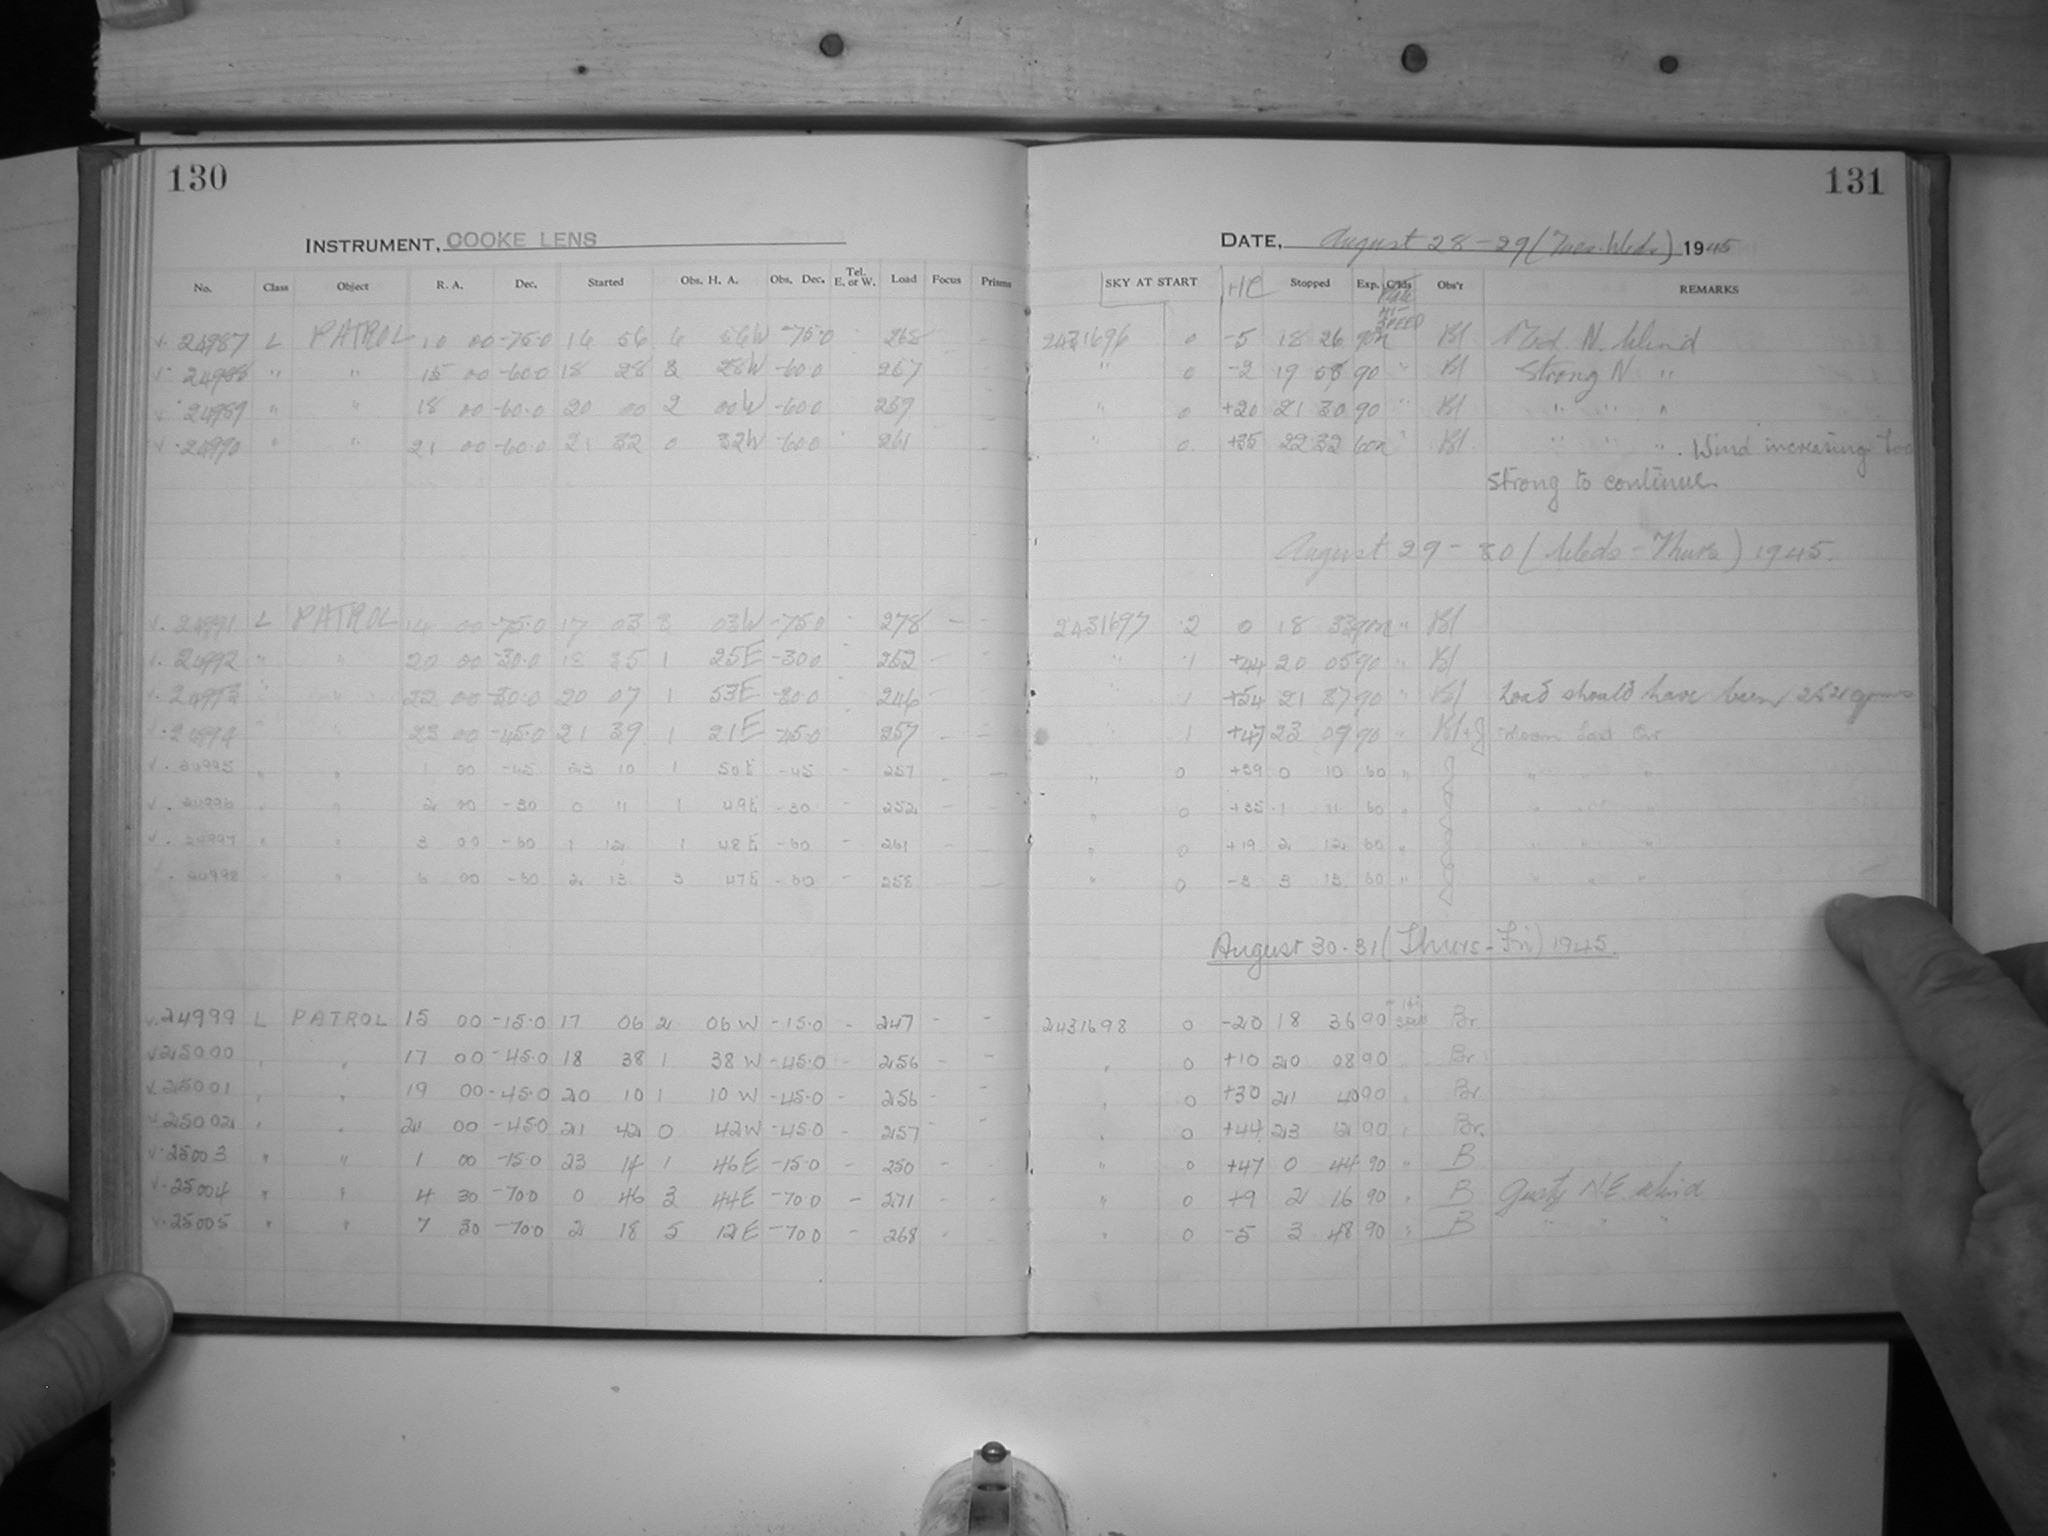 130
131
INSTRUMENT, COOKE LENS
DATE, August 28-29 (Tues-Weds.) 1945
No. Class Object R. A. Dec. Started Obs. H. A. Obs. Dec. Tel. E. or W. Load Focus Prisms SKY AT START HC Stopped Exp. Obs'r REMARKS
v. 24987 L PATROL 10 00 -75.0 16 56 6 56W -75.0 268 2431696 0 -5 18 26 90m Bl Mod. N. Wind
v. 24988 " " 15 00 -60.0 18 28 3 28W -60.0 267 " 0 -2 19 58 90 " Bl Strong N "
v. 24989 " " 18 00 -60.0 20 00 2 00W -60.0 259 " 0 +20 21 30 90 " Bl " " "
v. 24990 " " 21 00 -60.0 21 32 0 32W -60.0 261 " 0 +35 22 32 60m " Bl " " " . Wind increasing too
strong to continue
August 29 - 30 (Weds - Thurs) 1945.
v. 24991 L PATROL 14 00 -75.0 17 03 3 03W -75.0 - 278 - - 2431697 2 0 18 33 90m " Bl
v. 24992 " " 20 00 -30.0 18 35 1 25E -30.0 252 - - " 1 +44 20 05 90 " Bl
v. 24993 " " 22 00 -30.0 20 07 1 53E -30.0 246 - - " 1 +54 21 37 90 " Bl Load should have been 252 gms
v. 24994 " " 23 00 -45.0 21 39 1 21E -45.0 257 - - " 1 +47 23 09 90 " Bl+J Moon Last Qr
v. 24995 " " 1 00 -45 23 10 1 50E -45 - 257 - - " 0 +39 0 10 60 " J " " "
v. 24996 " " 2 00 -30 0 11 1 49E -30 - 252 - - " 0 +35 1 11 60 " J " " "
v. 24997 " " 3 00 -60 1 12 1 48E -60 - 261 - - " 0 +19 2 12 60 " J " " "
v. 24998 " " 6 00 -60 2 13 3 47E -60 - 258 - - " 0 -3 3 13 60 " J " " "
August 30-31 (Thurs-Fri) 1945.
v. 24999 L PATROL 15 00 -15.0 17 06 2 06 W -15.0 - 247 - - 2431698 0 -20 18 36 90 Br
v 25000 " " 17 00 -45.0 18 38 1 38 W -45.0 - 256 - - " 0 +10 20 08 90 Br
v. 25001 " " 19 00 -45.0 20 10 1 10 W -45.0 - 256 - - " 0 +30 21 40 90 " Br
v 25002 " " 21 00 -45.0 21 42 0 42W -45.0 - 257 - - " 0 +44 23 12 90 " Br.
v. 25003 " " 1 00 -15.0 23 14 1 46E -15.0 - 250 - - " 0 +47 0 44 90 " B
v. 25004 " " 4 30 -70.0 0 46 3 44E -70.0 - 271 - - " 0 +9 2 16 90 " B Gusty NE wind
v. 25005 " " 7 30 -70.0 2 18 5 12E -70.0 - 268 - - " 0 -5 3 48 90 " B " " "